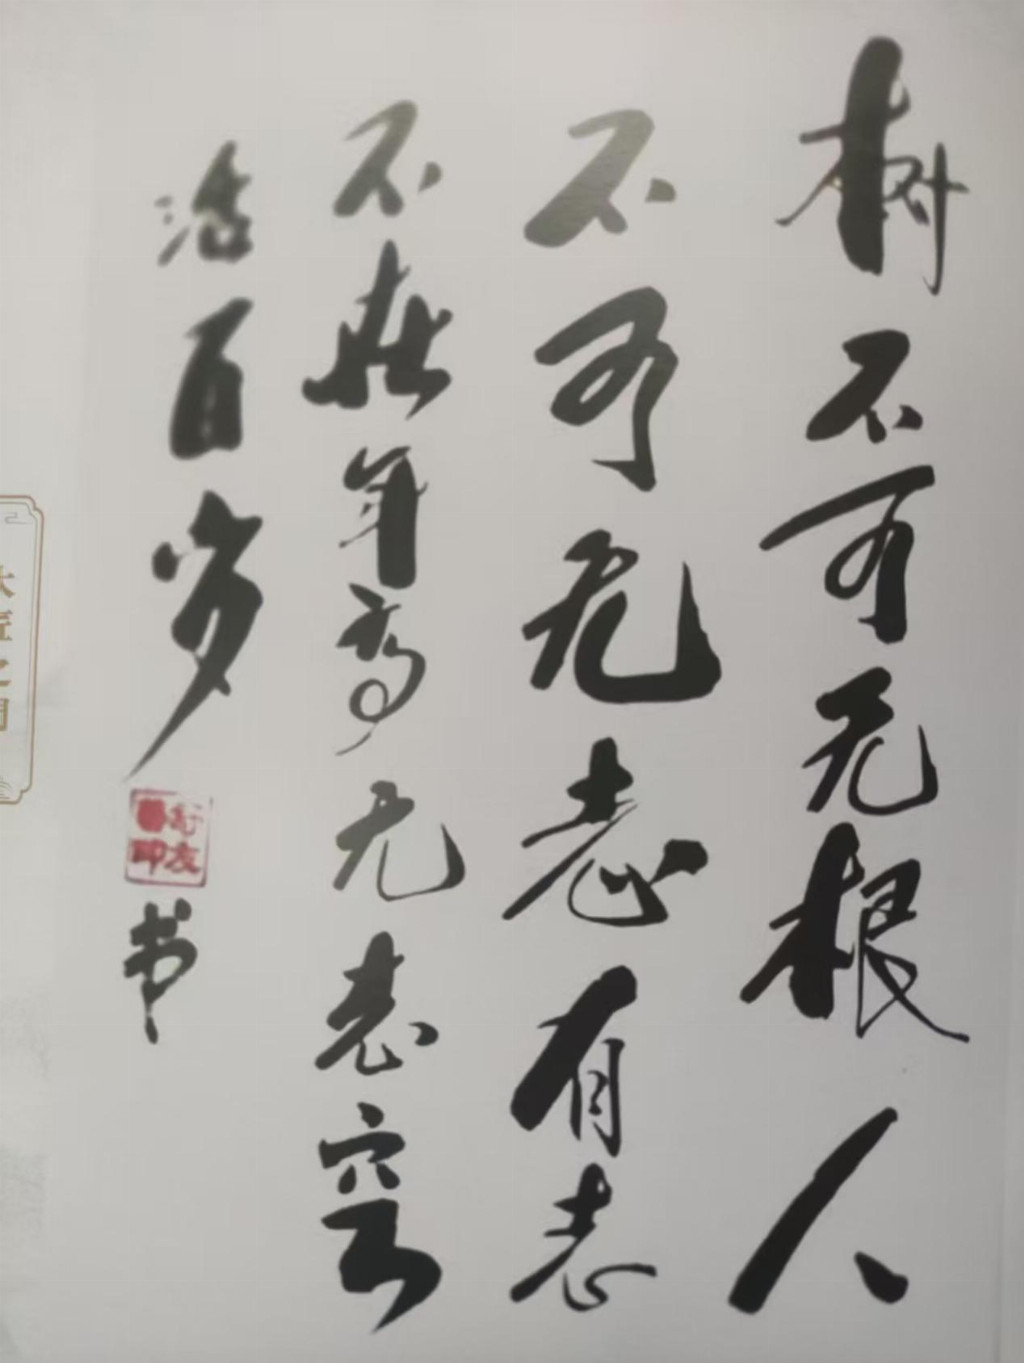 树不可无根人
不可无志有志
不在年高无志空
活百岁
友印
书